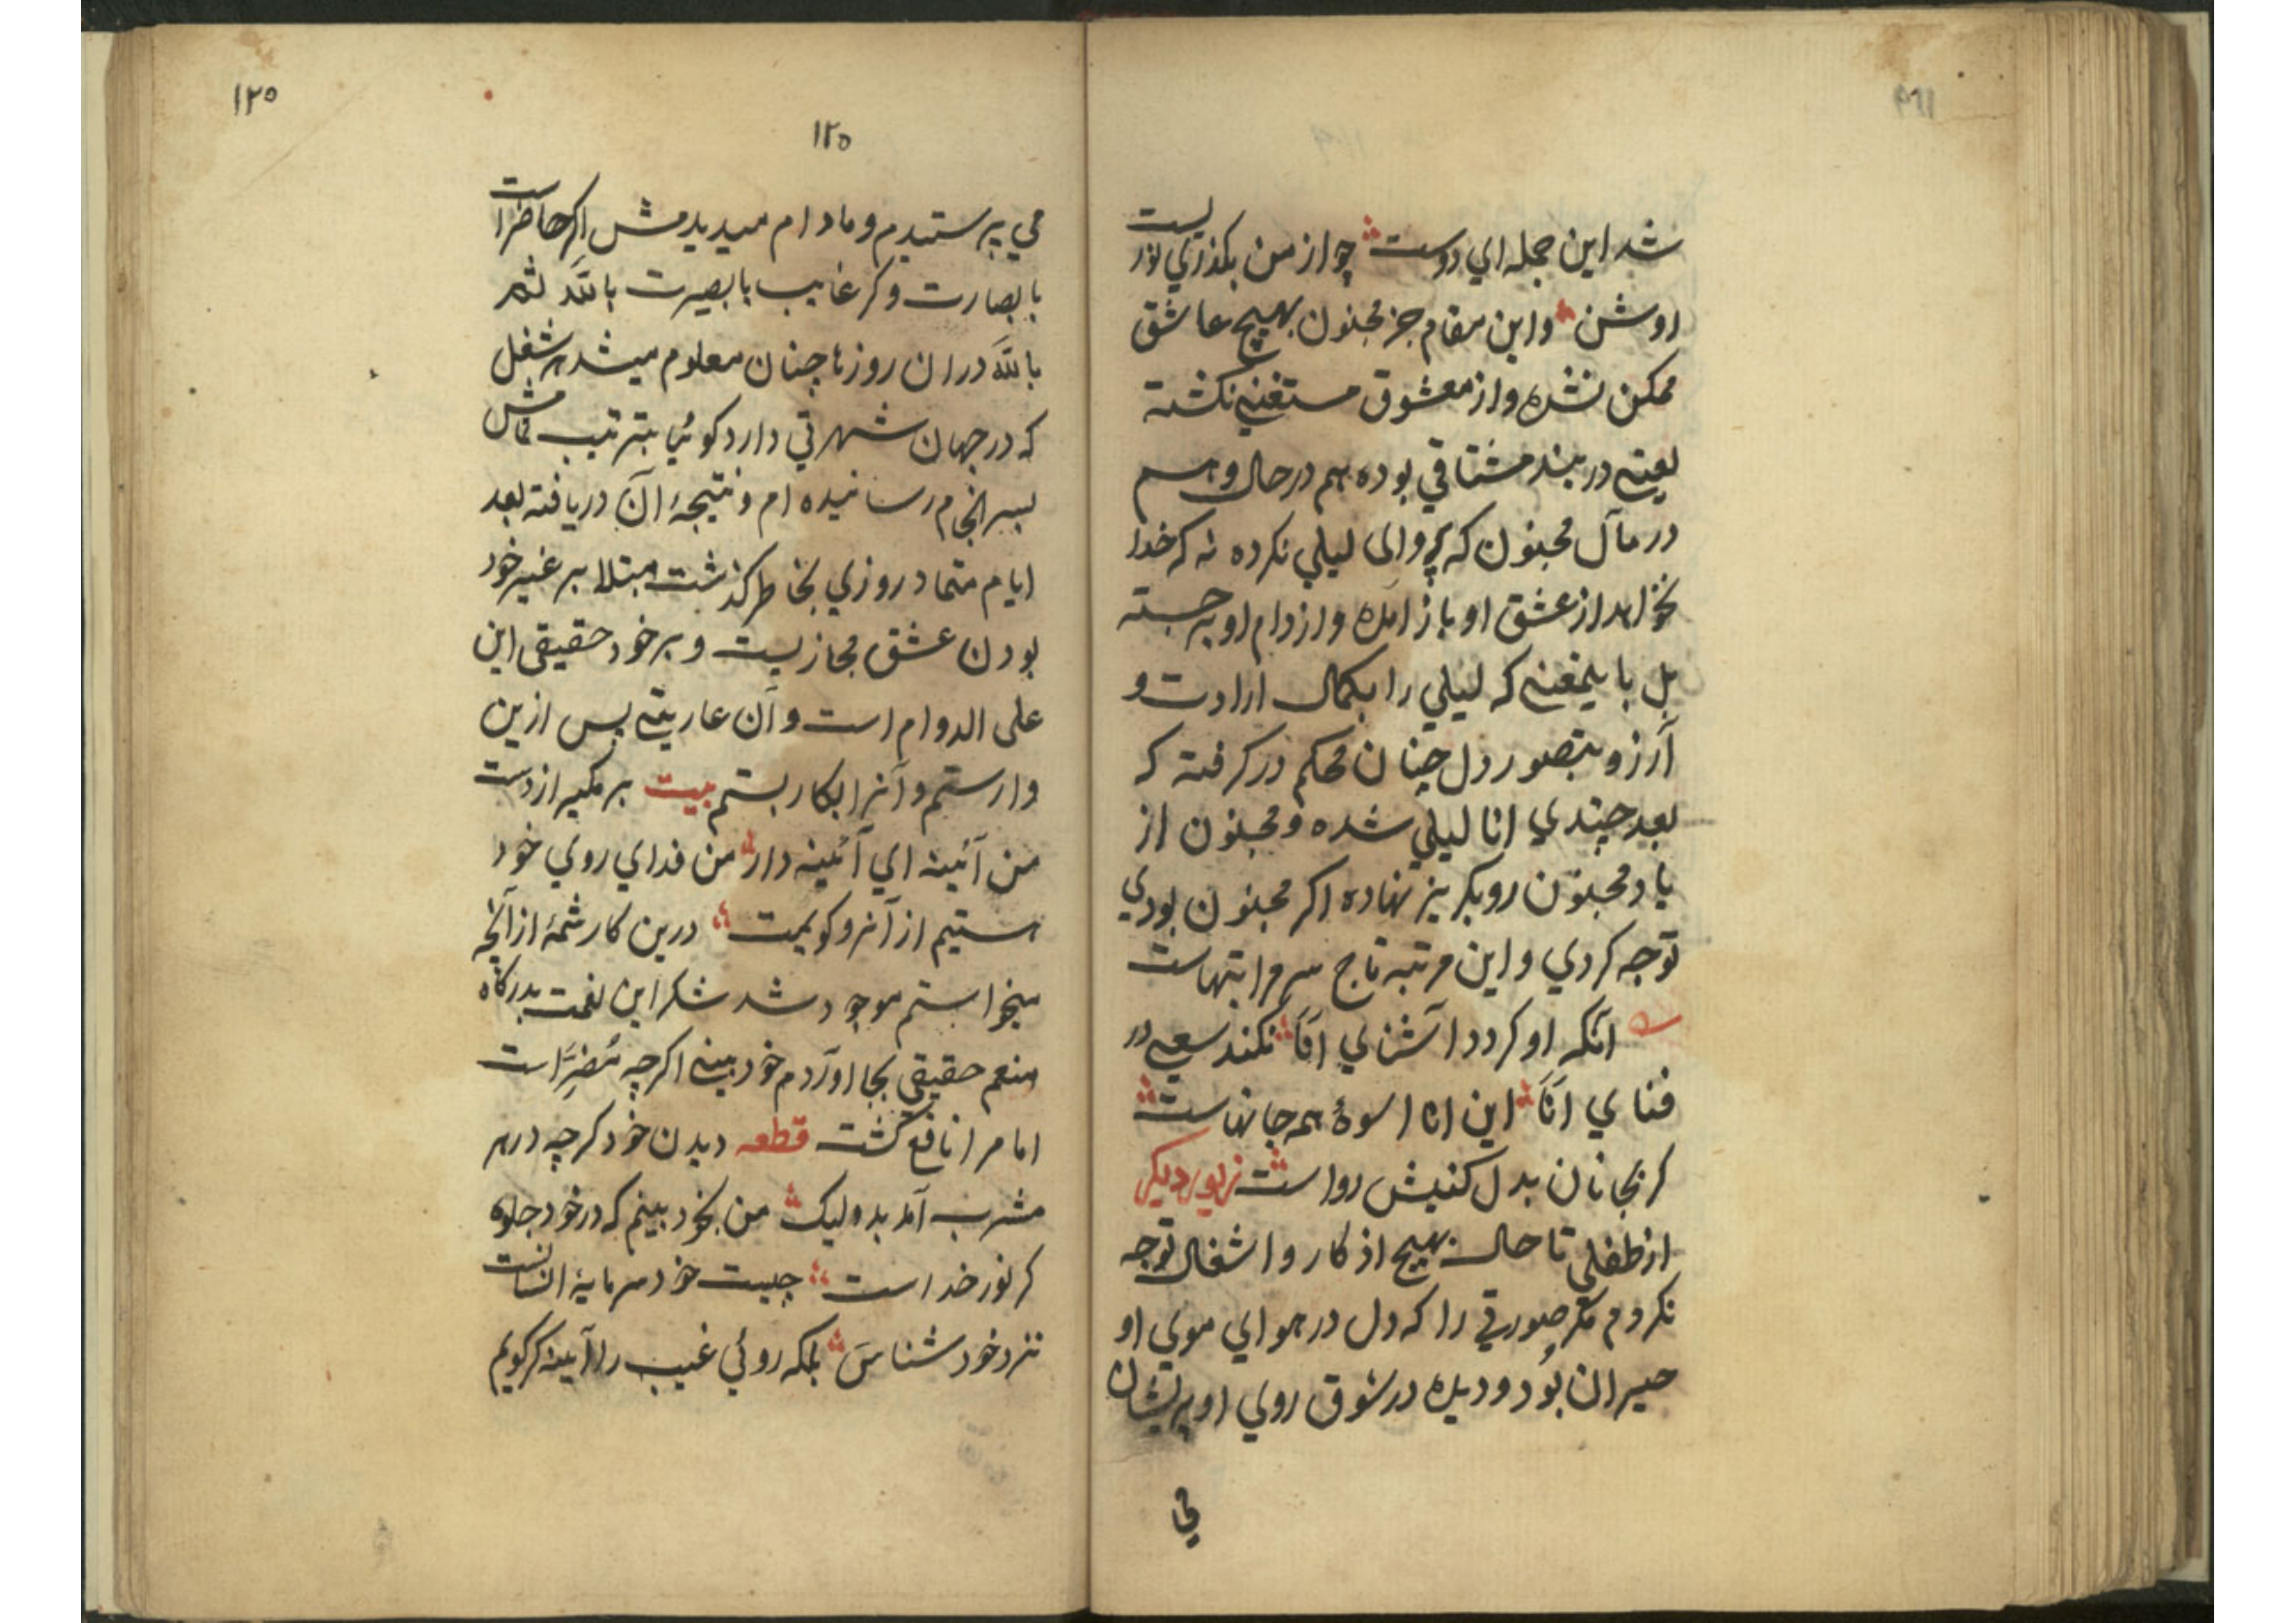 شد این جمله ای دوست چو از من بکذری لیست نور
او شن واین مقام جز مجنون بهیچ عاشق
ممکن نشده واز معشوق مستغنی نکشته
یعنی در بند مشتاقی بوده هم درحال وهم
در مآل مجنون که پروای لیلی نکرده نه که خدا
نخواهد از عشق او باز آمده واز دام او برجسته
بل باینمعنی که لیلی را بکمال ارادت و
آرزو بتصور دل چنان محکم درکرفته که
بعد چندی انا لیلی شده ومجنون از
یاد مجنون رو بکریز نهاده اکر مجنون بودی
توجه کردی واین مرتبه تاج سر مراتبهاست
آنکه او کردد آشنای اَنَا نکند سعی در
فنای اَنَا این انا اسوهٔ همه جانهاست
کر بجانان بدل کنیش رواست زیور دیکر
از طفلی تا حال بهیچ اذکار واشغال توجه
نکردم مکر صورتی را که دل در هوای موی او
حیران بُود ودیده در شوق روی او پریشان
می
۱۲۵
۱۲۵
می پرستیدم ومادام میدیدمش اکر حاضر است
بابصارت وکر غایب بابصیرت باللّه ثم
باللّه دران روزها چنان معلوم میشد هر شغل
که در جهان شهرتی دارد کوئیا بترتیب تمامش
بسرانجام رسانیده ام ونتیجهٔ آن دریافته بعد
ایام متماد روزی بخاطر کذشت مبتلا بر غیر خود
بودن عشق مجازیست وبر خود حقیقی این
علی الدوام است وآن عاریتی پس ازین
وارستم وآنرا بکار بستم بیت برمکیر از دست
من آئینه ای آئینه دار من فدای روی خود
هستیم از آنرو کویمت درین کار شمهٔ از آنچه
میخواستم موجود شد شکر این نعمت بدرکاه
منعم حقیقی بجا آوردم خودبینی اکرچه مُضِرّ است
اما مرا نافع کشت قطعه دیدن خود کرچه در هر
مشرب آمد بد ولیک من بخود بینم که در خود جلوه
کر نور خداست چیست خود سرمایهٔ انسانست
نزد خودشناس بلکه روئی غیب را آئینه کر کویم